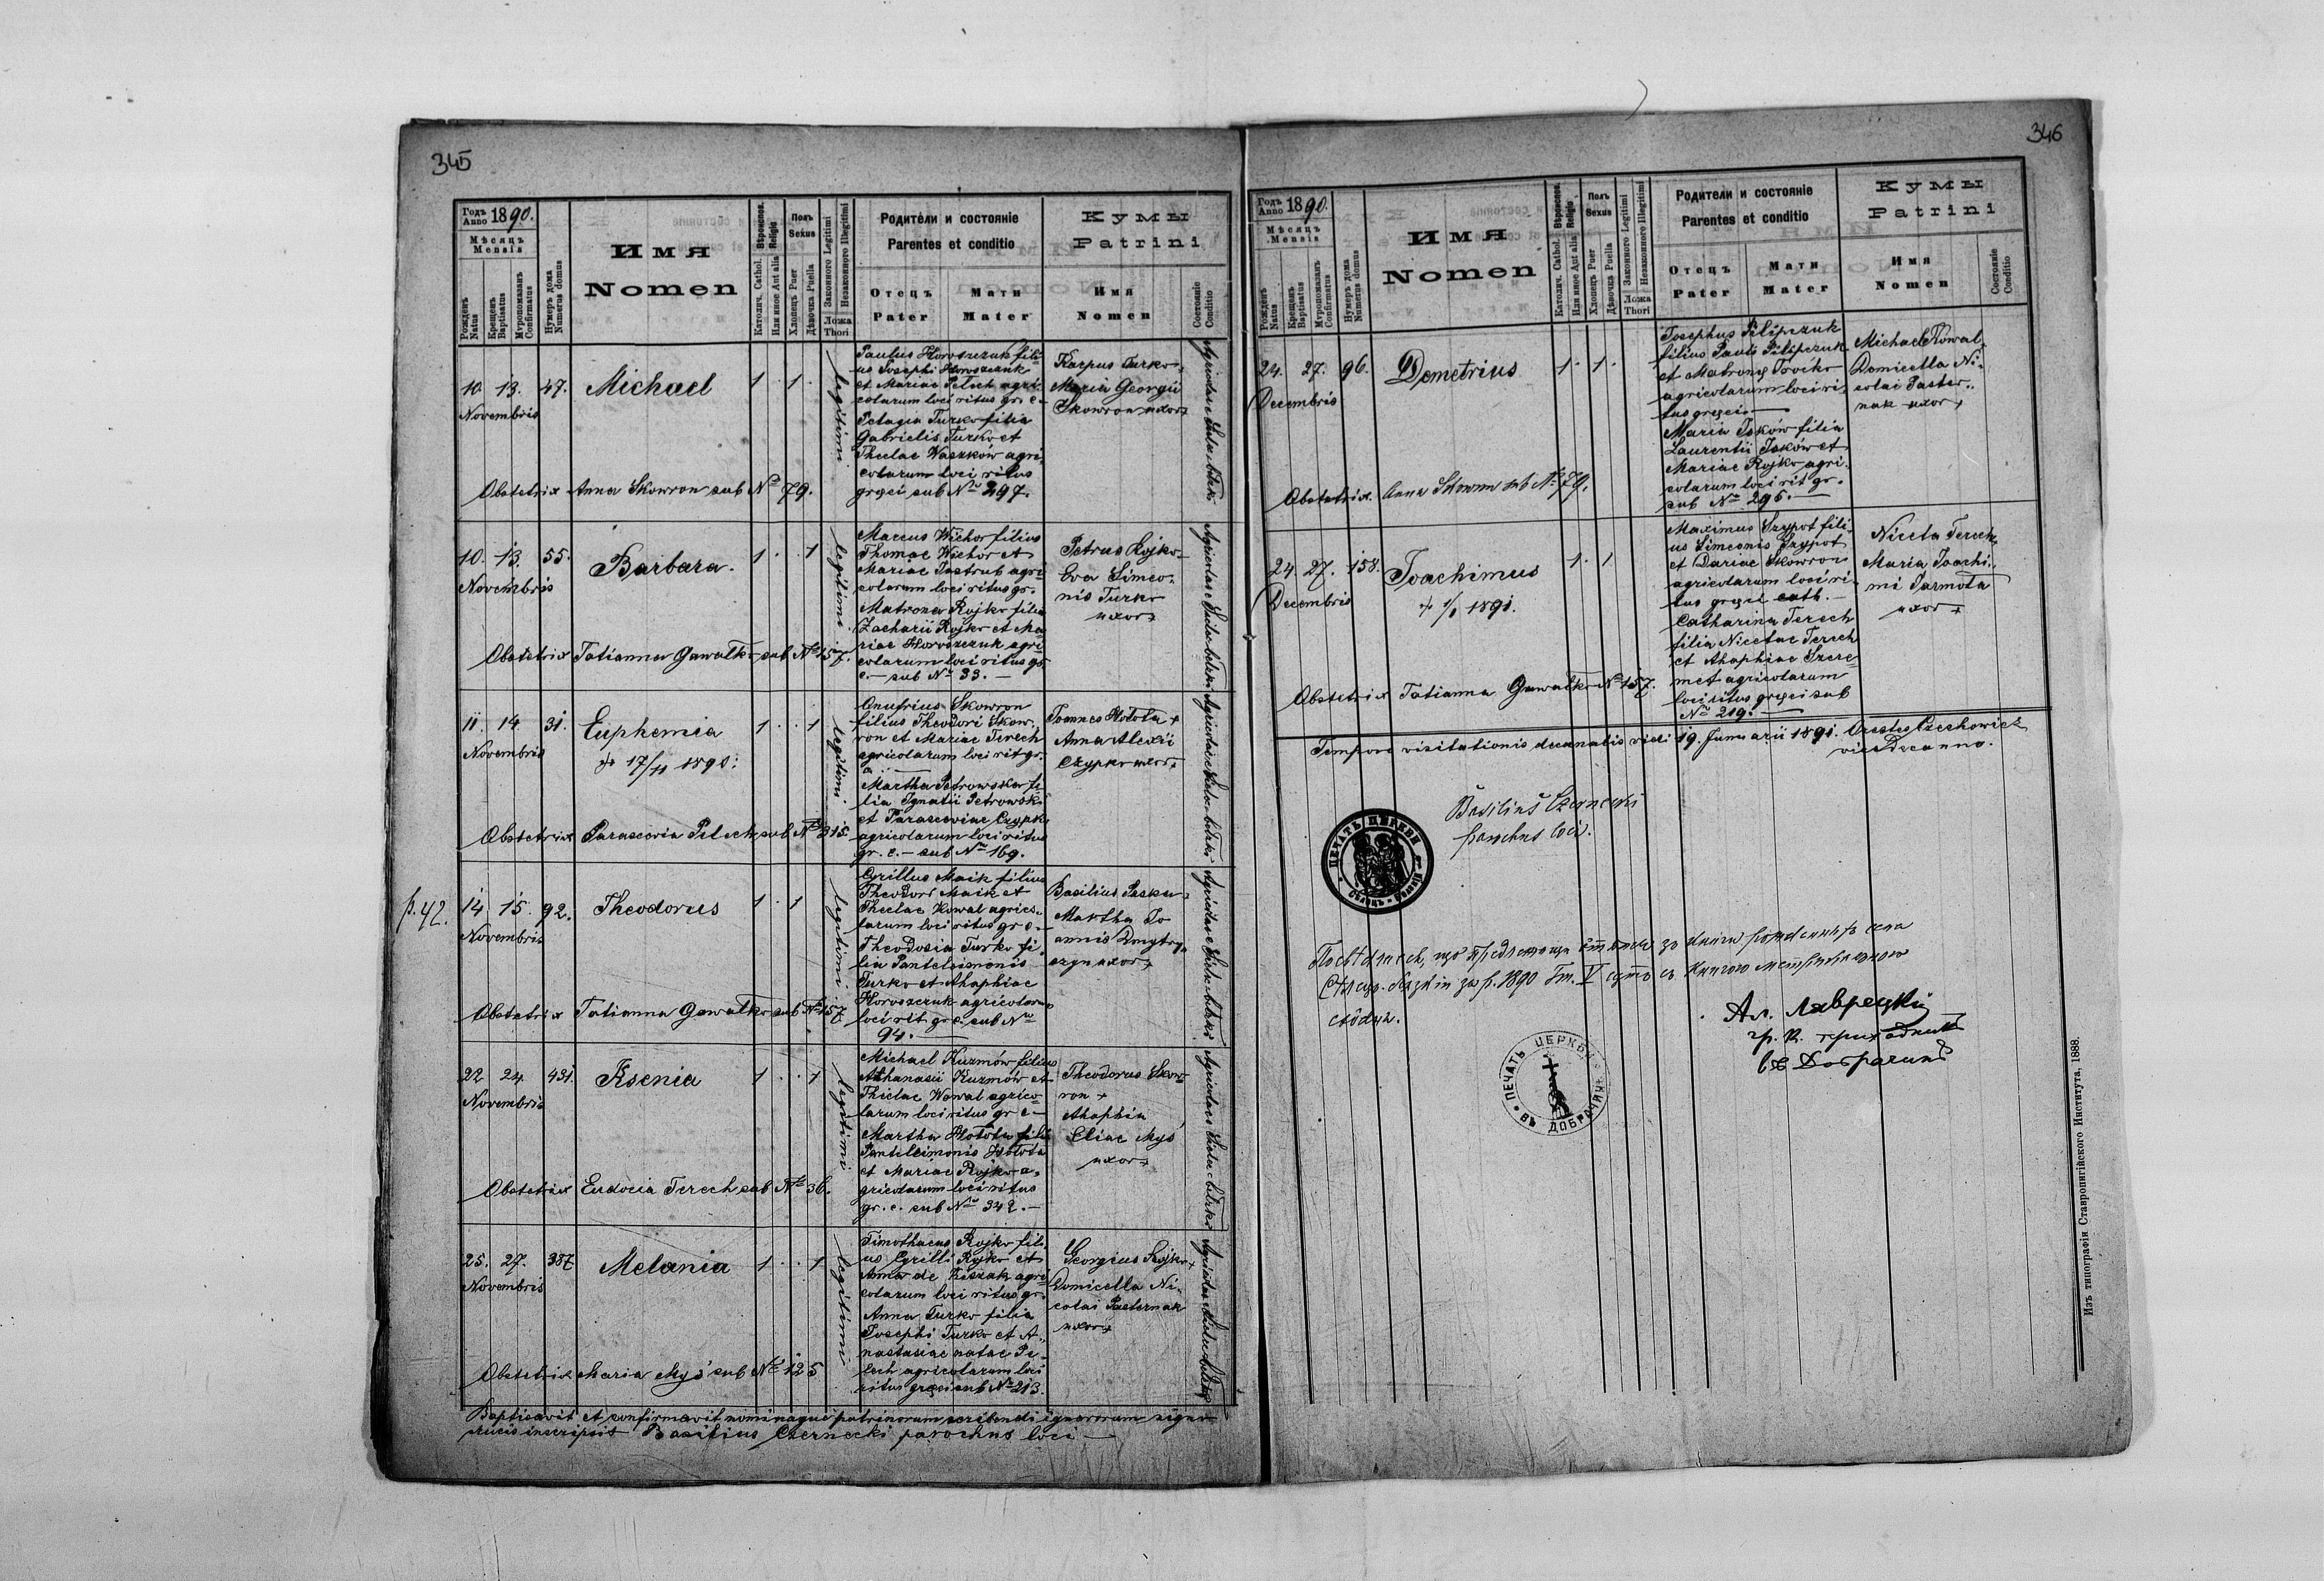 345
Годъ Anno 1890.
Мѣсяцъ Mensis
Рожденъ Natus
Крещенъ Baptisatus
Мѵропомазанъ Confirmatus
Нумеръ дома Numerus domus
Имя
Nomen
Вѣроиспов. Religio
Католич. Cathol.
Или иное Aut alia
Полъ Sexus
Хлопецъ Puer
Дѣвочка Puella
Законного Legitimi
Незаконного Illegitimi
Ложа Thori
Родители и состояніе
Parentes et conditio
Отецъ Pater
Мати Mater
Кумы
Patrini
Имя Nomen
Состояніе Conditio
10. 13. 47. Michael 1 . 1 .
Novembris
legitimi
Paulus Horoszczuk fili-
us Josephi Horoszczuk
et Mariae Pelech agri-
colarum loci ritus gr. c.
Pelagia Turko filia
Gabrielis Turko et
Theclae Waszków agri-
colarum loci ritus
gręci sub No 297.
Karpus Turko +
Maria Georgii
Skowron uxor +
Obstetrix Anna Skowron sub No 79.
10. 13. 55. Barbara. 1 . . 1
Novembris
legitimi
Marcus Wichor filius
Thomae Wichor et
Mariae Pastrub agri-
colarum loci ritus gr.
Matrona Rojko filia
Zacharii Rojko et Ma-
riae Horoszczuk agri-
colarum loci ritus gr.
c. — sub No 33. —
Petrus Rojko
Eva Simeo-
nis Turko
uxor +
Obstetrix Tatianna Gawalko sub No 157.
11. 14. 31. Euphemia 1 . . 1
Novembris
+ 17/11 1890.
legitimi
Onufrius Skowron
filius Theodori Skow-
ron et Mariae Terech
agricolarum loci rit gr.
Martha Petrowska fi-
lia Ignatii Petrowski
et Parasceviae Czypko
agricolarum loci ritus
gr. c. — sub No 169.
Joannes Hołota +
Anna Alexii
Czypko uxor +
Obstetrix Parascevia Pelech sub No 315.
р. 42.
14 15. 92. Theodorus 1 . 1
Novembris
legitimi
Cyrillus Maik filius
Theodori Maik et
Theclae Kowal agrico-
larum loci ritus gr c —
Theodosia Turko fi-
lia Panteleimonis
Turko et Ahaphiae
Horoszczuk agricolarum
loci rit. gr c. sub No
94. —
Basilius Pasku
Martha Jo-
annis Dmytry
uxor +
Obstetrix Tatianna Gawalko sub No 157.
22 24 431. Ksenia 1 . . 1
Novembris
legitimi
Michael Kuzmów filius
Athanasii Kuzmów et
Theclae Kowal agrico-
larum loci ritus gr c —
Martha Hołota filia
Panteleimonis Hołota
et Mariae Rojko a-
gricolarum loci ritus
gr. c. sub No 342. —
Theodorus Skow-
ron +
Ahaphia
Eliae Myś
uxor +
Obstetrix Eudocia Terech sub No 36.
25. 27. 387 Melania 1 . . 1
Novembris
legitimi
Timothaeus Rojko fili-
us Cyrilli Rojko et
Anna de Kiszak agri-
colarum loci ritus gr.
Anna Turko filia
Josephi Turko et A-
nastasiae natae Pe-
lech agricolarum loci
ritus gręci sub No 213.
Georgius Rojko +
Domicella Ni-
colai Pasternak
uxor +
Obstetrix Maria Myś sub No 125
Baptisavit et confirmavit nominaque patrinorum scribendi ignarorum signo
crucis inscripsit Basilius Czernecki parochus loci —
346
Годъ Anno 1890.
Мѣсяцъ Mensis
Рожденъ Natus
Крещенъ Baptisatus
Мѵропомазанъ Confirmatus
Нумеръ дома Numerus domus
Имя
Nomen
Вѣроиспов. Religio
Католич. Cathol.
Или иное Aut alia
Полъ Sexus
Хлопецъ Puer
Дѣвочка Puella
Законного Legitimi
Незаконного Illegitimi
Ложа Thori
Родители и состояніе
Parentes et conditio
Отецъ Pater
Мати Mater
Кумы
Patrini
Имя Nomen
Состояніе Conditio
24. 27. 96. Demetrius 1 . 1 .
Decembris
Josephus Pilipczuk
filius Pauli Pilipczuk
et Matronę
agricolarum loci ri-
tus gręci. —
Maria Jsków filia
Laurentii Jsków et
Mariae Rojko agri-
colarum loci rit gr.
sub No 296. —
Michael Kowal
Domicella Ni-
colai Paster-
nak uxor +
Obstetrix. Anna Skowron sub No 79.
24. 27. 158. Joachimus 1 . 1
Decembris
+ 1/1 1891.
Maximus Szypot fili-
us Simeonis Szypot
et Dariae Skowron
agricolarum loci ri-
tus gręci cath. —
Catharina Terech
filia Nicetae Terech
et Ahaphiae Szere-
met agricolarum
loci ritus gręci sub
No 219. —
Niceta Terech
Maria Joachi-
mi Jarmoła
uxor +
Obstetrix Tatianna Gawalko No 157.
Tempore visitationis decanalis vidi 19. Januarii 1891. Orestes Czechowicz
vice Decanus.
Basilius Czernecki
parochus loci.
ПЕЧАТЬ ЦЕРКВИ
за р. 1890 Tm. V
Ал. Лаврецкій
гр. к. приходникъ
въ Добрачинѣ
ПЕЧАТЬ ЦЕРКВИ ВЪ ДОБРАЧИНѢ
Изъ типографіи Ставропигійского Института, 1888.